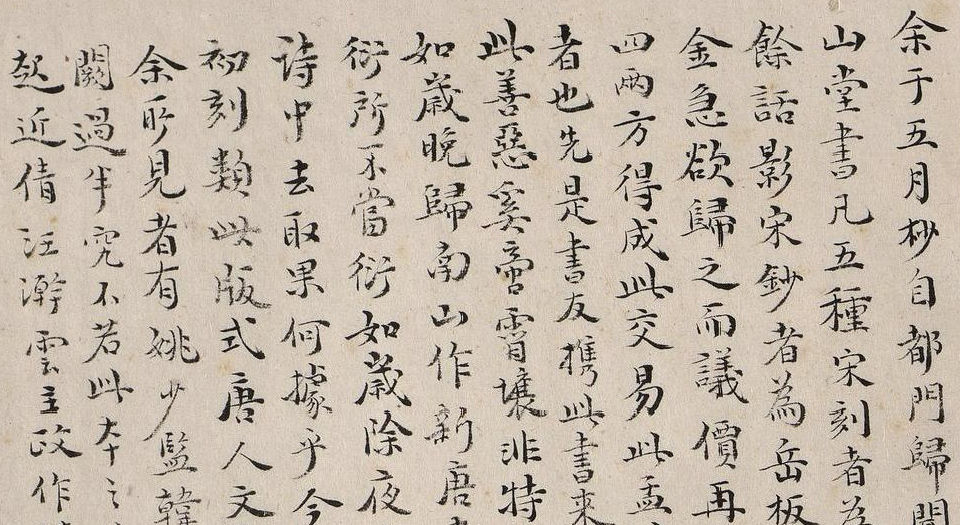 余于五月杪自都門歸聞
山堂書凡五種宋刻者為
餘話影宋鈔者為岳板
金急欲歸之而議價再
四兩方得成此交易此孟
者也先是書友攜此書来
此善惡奚啻霄壤非特
如歲晚歸南山作新唐
衍所不當衍如歲除夜
詩中去取果何據乎今
初刻類此版式唐人文
余所見者有姚少監韓
闕過半究不若此本之
起近倩汪澣雲主政作